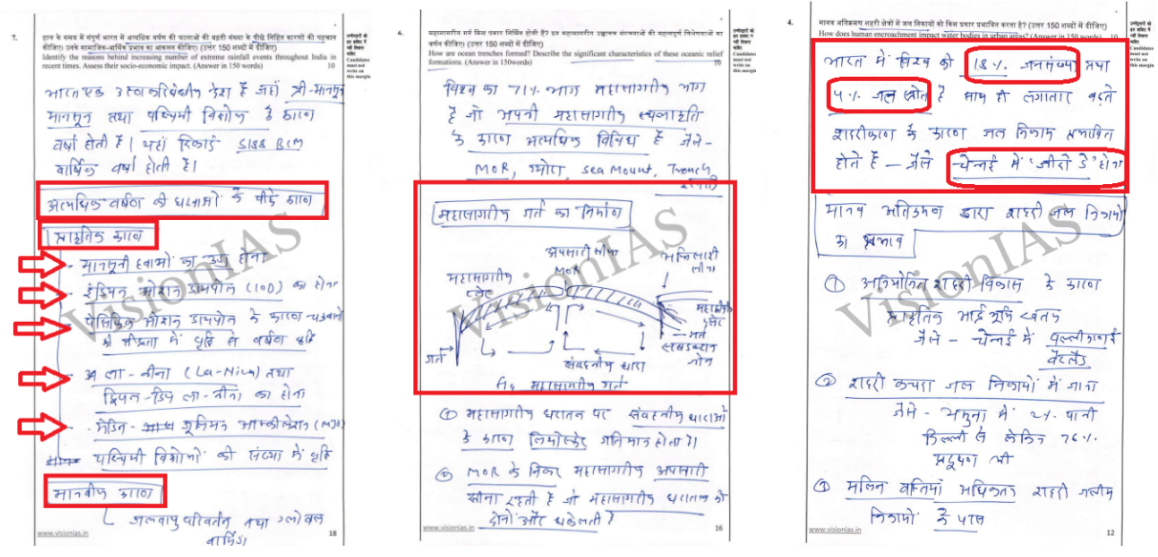 7.
हाल के समय में संपूर्ण भारत में अत्यधिक वर्षण की घटनाओं की बढ़ती संख्या के पीछे निहित कारणों की पहचान
कीजिए। उनके सामाजिक-आर्थिक प्रभाव का आकलन कीजिए। (उत्तर 150 शब्दों में दीजिए)
Identify the reasons behind increasing number of extreme rainfall events throughout India in
recent times. Assess their socio-economic impact. (Answer in 150 words) 10
Candidates
must not
write on
this margin
भारत एक उष्णकटिबंधीय देश है जहाँ
मानसून तथा पश्चिमी विक्षोभ के कारण
वर्षा होती है। यहां
वार्षिक वर्षा होती है।
अत्यधिक वर्षण की घटनाओं के पीछे कारण
प्राकृतिक कारण
- मानसूनी हवाओं का उग्र होना
- इंडियन ओशन डायपोल (IOD) का होना
- पैसिफिक ओशन डायपोल के कारण
में वृद्धि से वर्षण वृद्धि
- ला-नीना (La-Nina) तथा
ट्रिपल-डिप ला-नीना का होना
- मेडन जूलियन ऑस्किलेशन (MJO)
पश्चिमी विक्षोभों की संख्या में वृद्धि
मानवीय कारण
जलवायु परिवर्तन तथा ग्लोबल
वार्मिंग
VisionIAS
www.visionias.in
18
6.
महासागरीय गर्त किस प्रकार निर्मित होती हैं? इन महासागरीय उच्चावच संरचनाओं की महत्वपूर्ण विशेषताओं का
वर्णन कीजिए। (उत्तर 150 शब्दों में दीजिए)
How are ocean trenches formed? Describe the significant characteristics of these oceanic relief
formations. (Answer in 150words) 10
Candidates
must not
write on
this margin
विश्व का 71% भाग महासागरीय भाग
है जो अपनी महासागरीय स्थलाकृति
के कारण अत्यधिक विविध है जैसे-
MOR, गयोट, Sea Mount, Trench
इत्यादि
महासागरीय गर्त का निर्माण
अपसारी सीमा
MOR
अभिसारी
सीमा
महासागरीय
प्लेट
महाद्वीपीय
प्लेट
गर्त
गर्त
सबडक्शन
जोन
संवहनीय धारा
Fig महासागरीय गर्त
① महासागरीय धरातल पर संवहनीय धाराओं
के कारण लिथोस्फेर गतिमान होता है।
② MOR के निकट महासागरीय अपसारी
सीमा रहती है जो महासागरीय धरातल को
दोनों ओर धकेलती है
VisionIAS
www.visionias.in
16
4.
मानव अतिक्रमण शहरी क्षेत्रों में जल निकायों को किस प्रकार प्रभावित करता है? (उत्तर 150 शब्दों में दीजिए)
How does human encroachment impact water bodies in urban areas? (Answer in 150 words) 10
Candidates
must not
write on
this margin
भारत में विश्व की 18% जनसंख्या तथा
4% जल स्रोत है साथ ही लगातार बढ़ते
शहरीकरण के कारण जल निकाय प्रभावित
होते हैं - जैसे चेन्नई में 'जीरो डे' होना
मानव अतिक्रमण द्वारा शहरी जल निकायों
का प्रभाव
① अनियोजित शहरी विकास के कारण
प्राकृतिक आर्द्र भूमि खत्म
जैसे - चेन्नई में पल्लीकरनई
वेटलैंड
② शहरी कचरा जल निकायों में जाना
जैसे - यमुना में 2% पानी
दिल्ली से लेकिन 76%
प्रदूषण भी
③ मलिन बस्तियां अधिकतर शहरी जलीय
निकायों के पास
VisionIAS
www.visionias.in
12